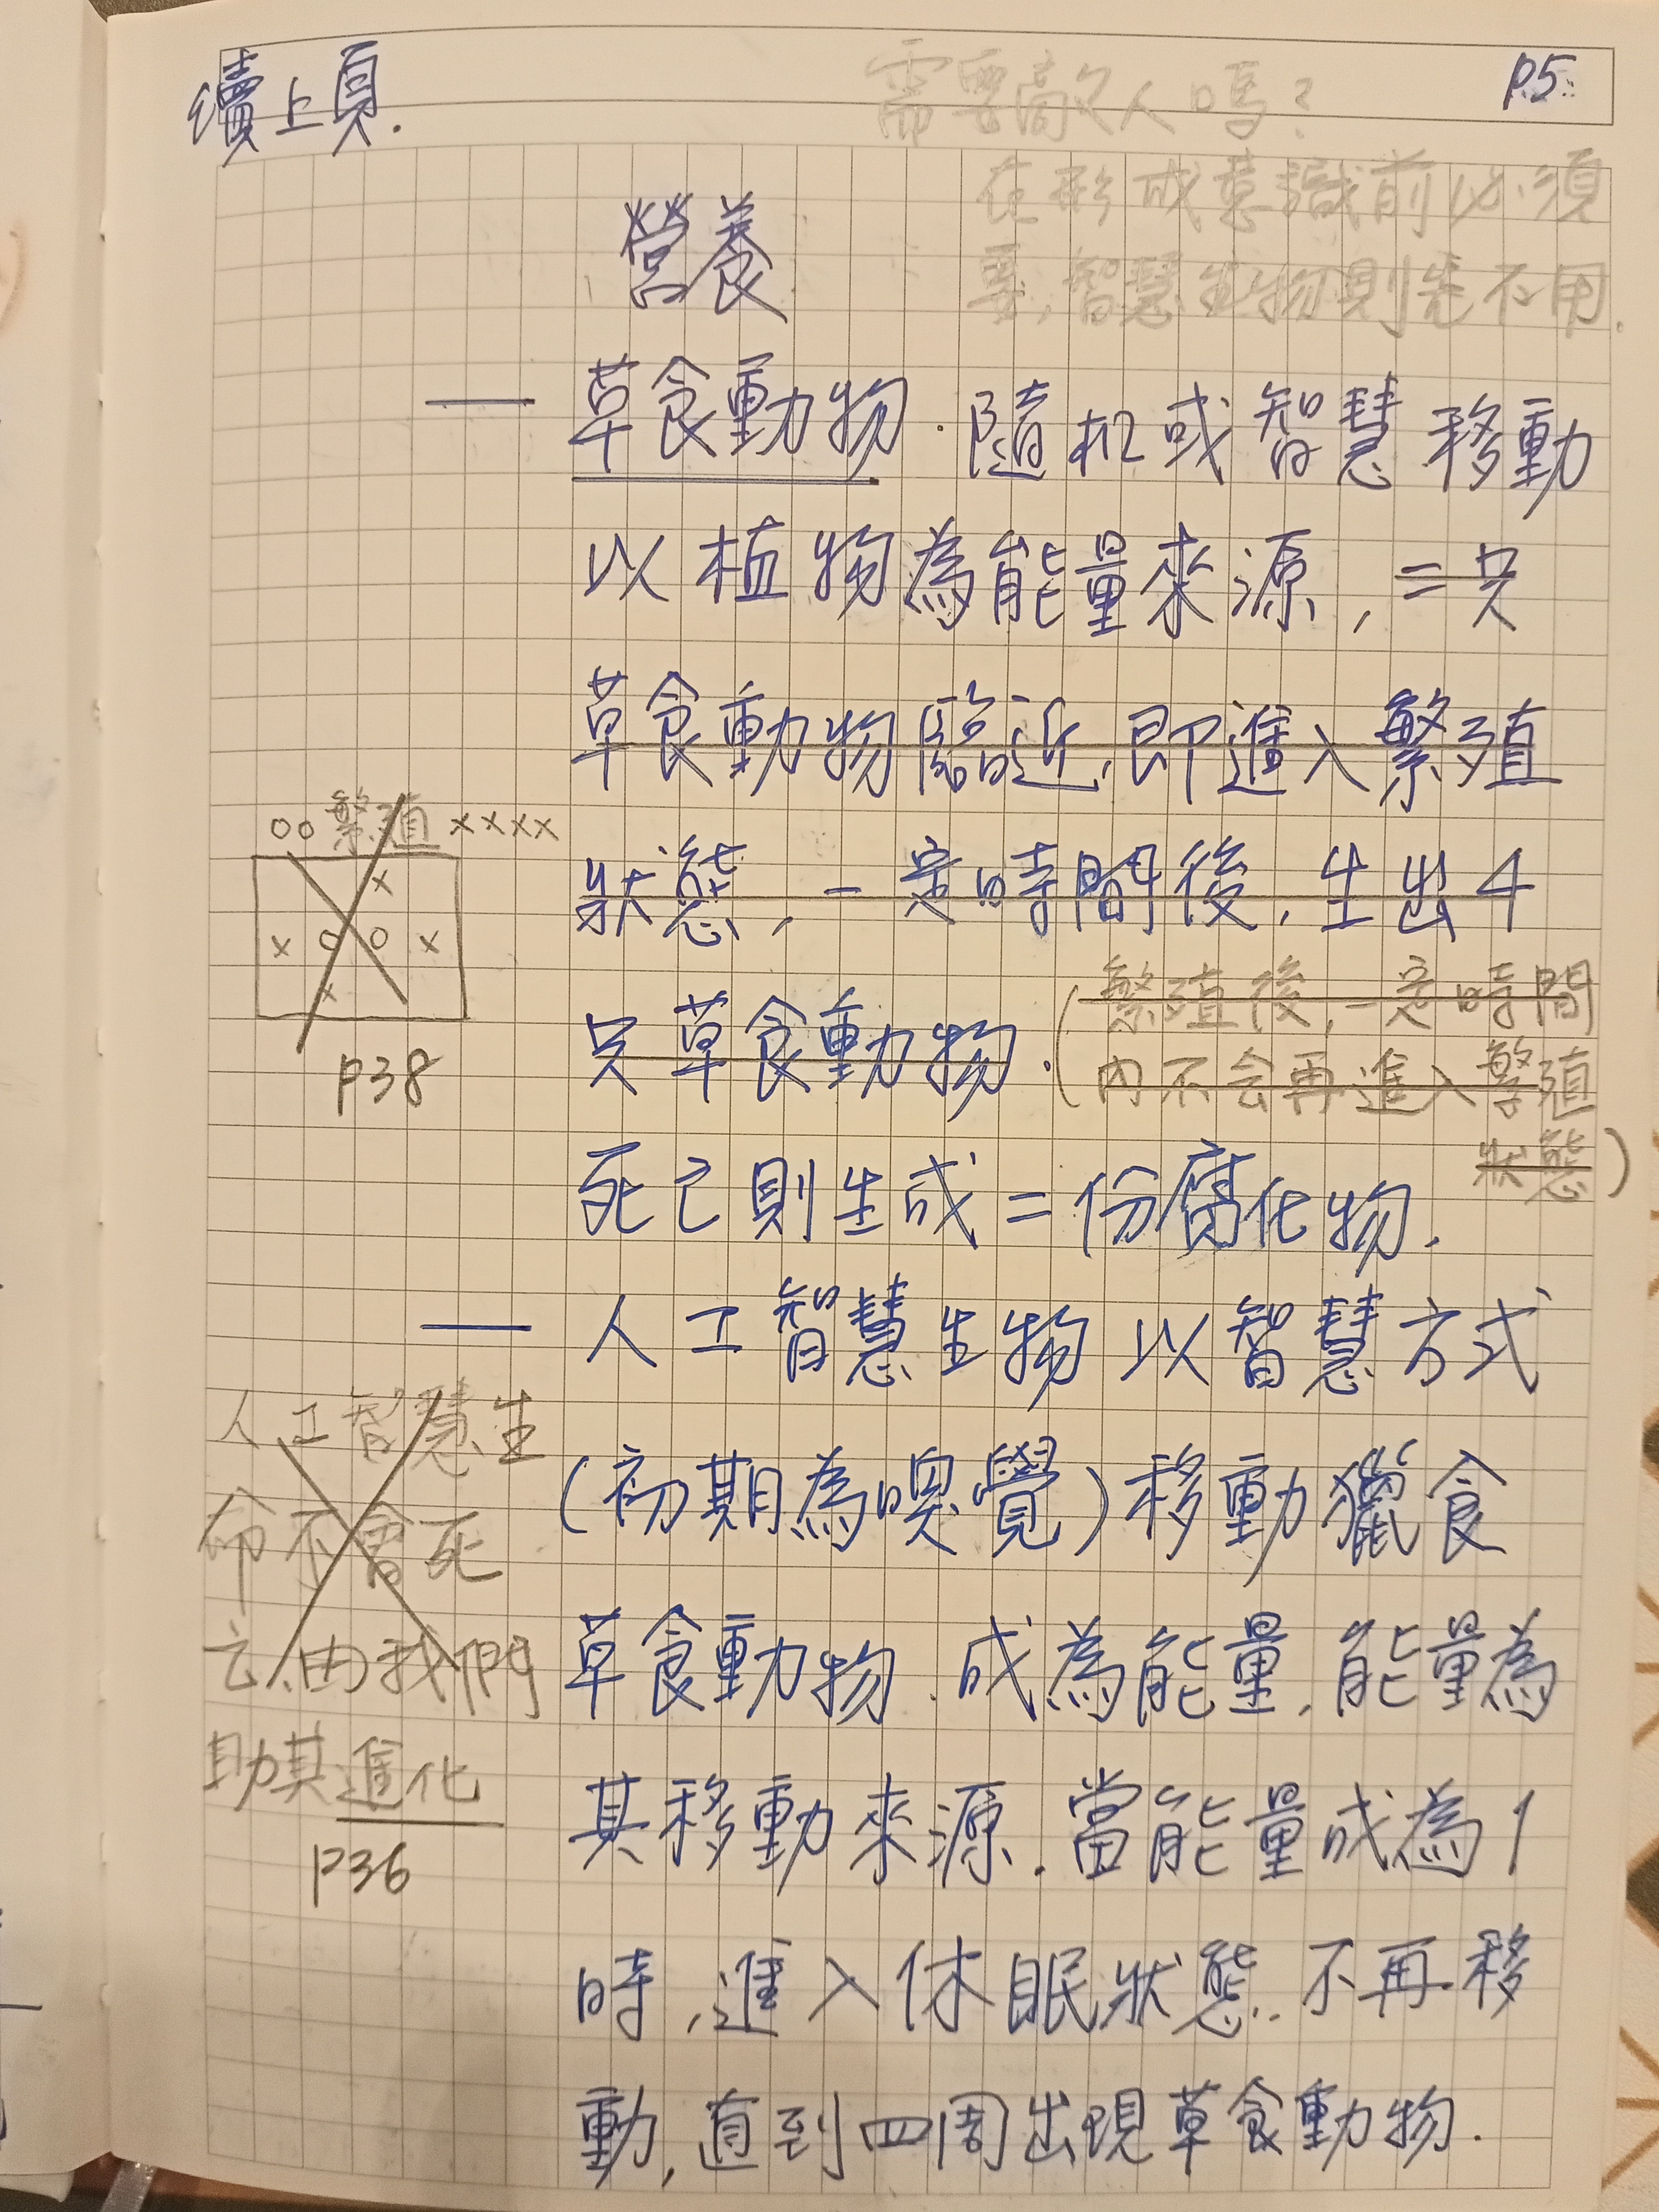 續上頁.
P.5
需要敵人嗎?
在形成意識前必須
要,智慧生物則先不用.
營養
— 草食動物.隨机或智慧移動
以植物為能量來源,二只
草食動物臨近,即進入繁殖
狀態,一定時間後,生出4
只草食動物.(繁殖後,一定時間
內不会再進入繁殖
狀態)
oo繁殖xxxx
x
x o o x
x
P38
死亡則生成二份腐化物.
— 人工智慧生物 以智慧方式
(初期為嗅覺)移動獵食
草食動物.成為能量,能量為
其移動來源.當能量成為1
時,進入休眠狀態.不再移
動,直到四周出現草食動物.
人工智慧生
命不會死
亡.由我們
助其進化
P36